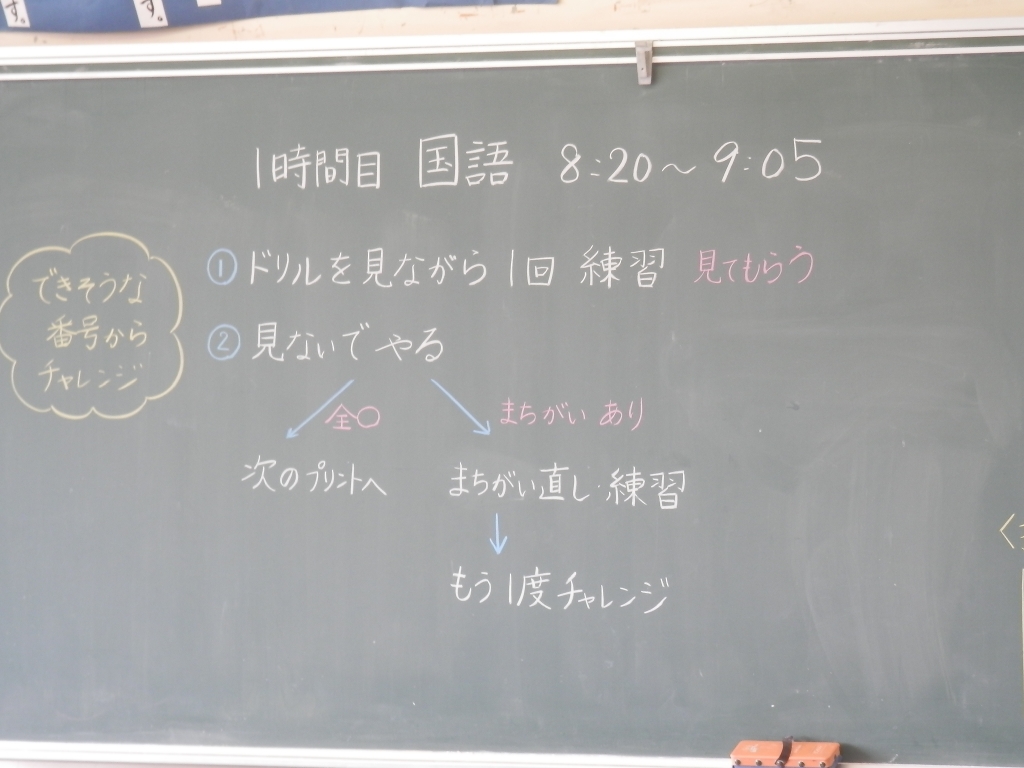 す。
す。
1時間目 国語 8:20～9:05
できそうな
番号から
チャレンジ
① ドリルを見ながら 1回 練習 見てもらう
② 見ないで やる
全〇 まちがい あり
次のプリントへ まちがい直し・練習
もう1度チャレンジ